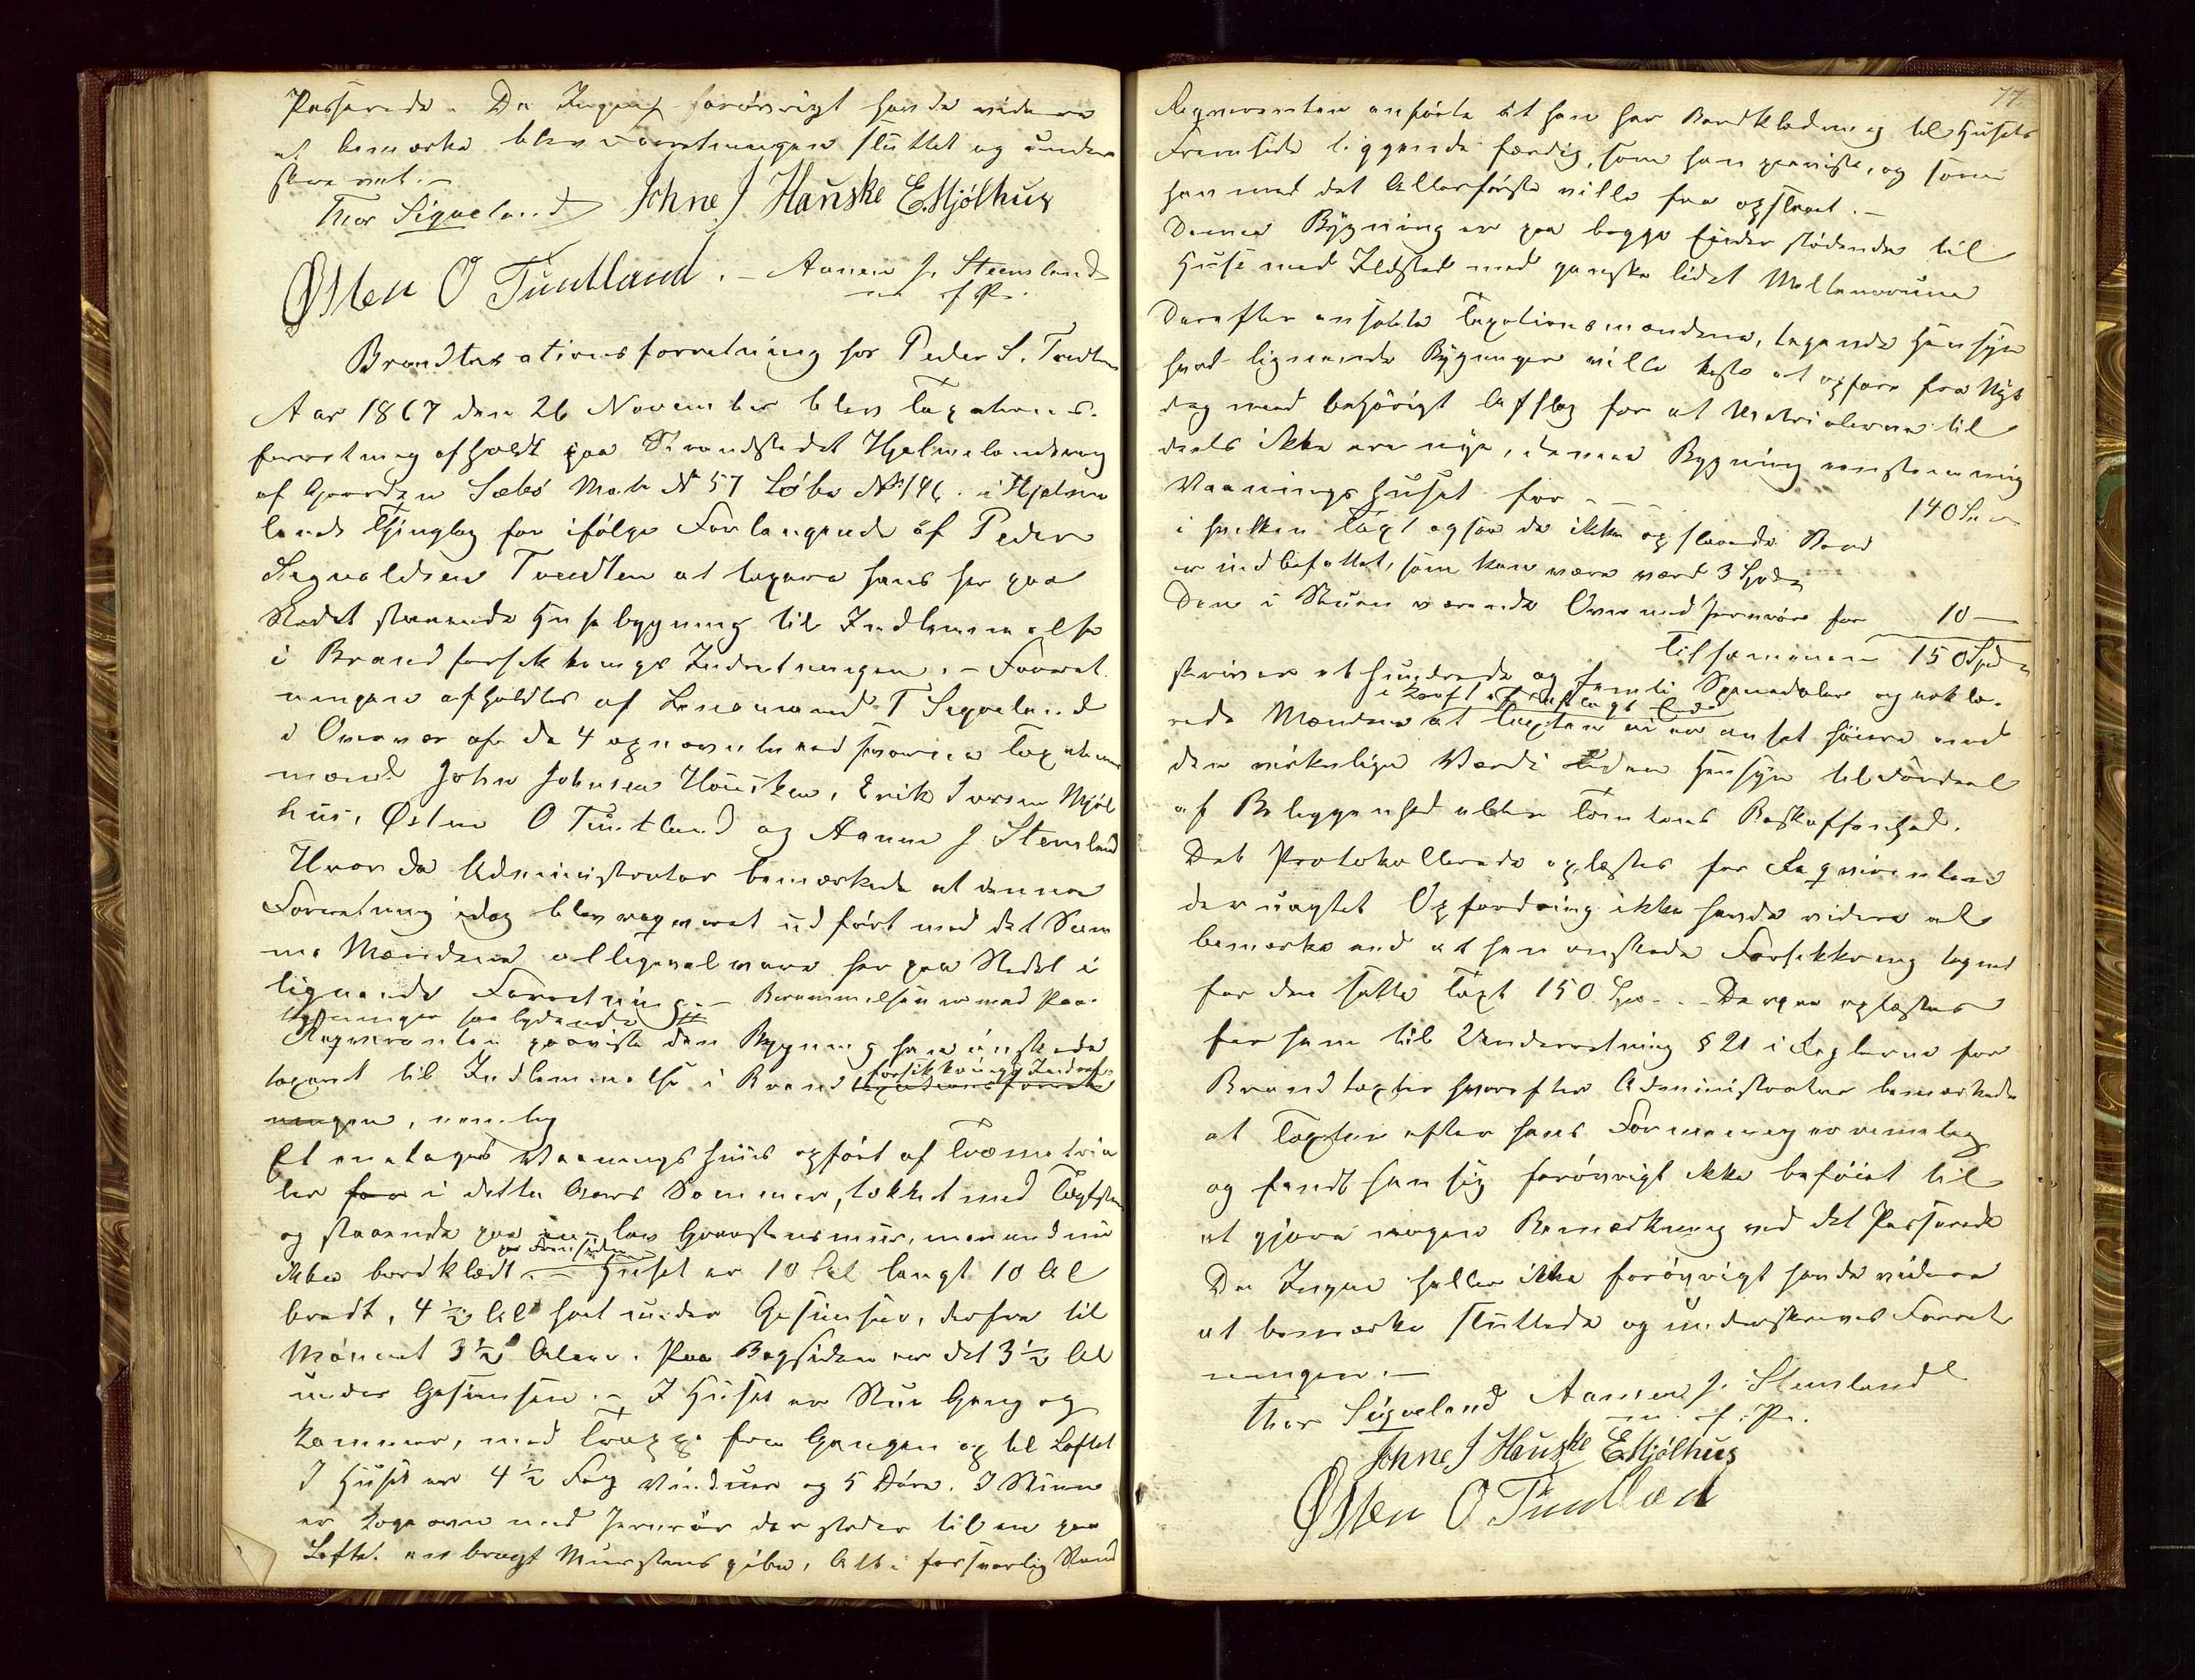 Passerede. Da Ingen forøvrigt havde videre
at bemærke blev Forretningen sluttet og under
skrevet.-
Thor Sigveland Johne J Hauske E. Mjølhus
Østen O Tuntland. - Aanen J. Steensland
m f P.
Brandtaxationsforretning for Peder S. Tvedten
Aar 1867 den 26 November blev Taxations-
forretning afholdt paa Strandstedet Hjelmelandsvaag
af Gaarden Sæbø Matr N 57 Løbe No 146. i Hjelme
lands Thinglag for ifølge Forlangende af Peder
Sigvaldsen Tvedten at taxere hans her paa
Stedet staaende Husebygning til Indlemmelse
i Brandforsikkrings Indretningen. - Forret
ningen afholdtes af Lensmand T Sigveland
i Overvær af de 4 opnævnte edsvorne Taxations
mænd John Johnsen Housken, Erik Iversen Mjøl
huus, Østen O Tuntland og Aanen J Stensland
Hvor da Administrator bemærkede at denne
Forretning idag blev reqvireret udført med det Sam
me Mændene alligevel vare her paa Stedet i
lignende Forretning. - Berammelsen med Paa-
tegninger saa lydende #
Reqvirenten paaviste den Bygning han ønskede
taxeret til Indlemmelse i Brand forsikkrings Indret
taxationsforret
ningen, nemlig
Et enetages Vaaningshuus opført af Træmateria
ler for i dette Aars Sommer, tækket med Taglsten
og staaende paa en lav Graastensmuur, men endnu
ikke bordklædt paa Fremsiden. - Huset er 10 Al langt 10 Al
bredt, 4 ½ Al høit under Gesimsen, derfra til
Mønnet 3 ½ Alen. Paa Bagsiden er det 3 ½ Al
under Gesimsen. - I Huset er Stue Gang og
Kammer, med Trappe fra Gangen op til Loftet
I Huset er 4 ½ Fag Vinduer og 5 Døre. I Stuen
er Kogeovn med Jernrør der støder til en paa
Loftet anbragt Muurstenspibe, Alt i forsvarlig Stand
77.
Reqvirenten anførte at han har Bordklædning til Husets
Fremside liggende færdig, som han paaviste, og som
han med det Allerførste ville faa opslaaet. -
Denne Bygning er paa begge Ender stødende til
Huse med Ildsted med ganske lidet Mellemrum
Derefter ansatte Taxationsmændene, tagende Hensyn
hvad lignende Bygninger ville koste at opføre fra Nyt
dog med behørigt Afslag for at Matrialierne til
deels ikke ere nye, denne Bygning eenstemmig
Vaaningshuset for - - 140 Spd
i hvilken Taxt ogsaa de ikke opslaaede Bord
er indbefattet, som kan være værd 3 Spd
Den i Stuen værende Ovn med Jernrør for 10 -
Tilsammen 150 Spd
skriver et hundrede og femti Speciedaler og erklæ-
i Kraft af aflagt Eed
rede Mændene at Taxten ei er ansat høiere end
den virkelige Værdi uden Hensyn til Fordeel
af Beliggenhed eller Tomtens Beskaffenhed.
Det Protokollerede oplæstes for Reqvirenten
der uagtet Opfordring ikke havde videre at
bemærke end at han ønskede Forsikkring tegnet
for den satte Taxt 150 Spd. - Derpaa oplæstes
for ham til Underretning § 21 i Reglerne for
Brandtaxter hvorefter Administrator bemærkede
at Taxten efter hans Formening er rimelig
og fandt han sig forøvrigt ikke beføiet til
at gjøre nogen Bemærkning ved det Passerede
Da Ingen heller ikke forøvrigt havde videre
at bemærke sluttede og underskreves Forret
ningen. -
Thor Sigveland Aanen J. Stensland
m. f. P.
Johne J Hauske E Mjølhus
Østen O Tuntland